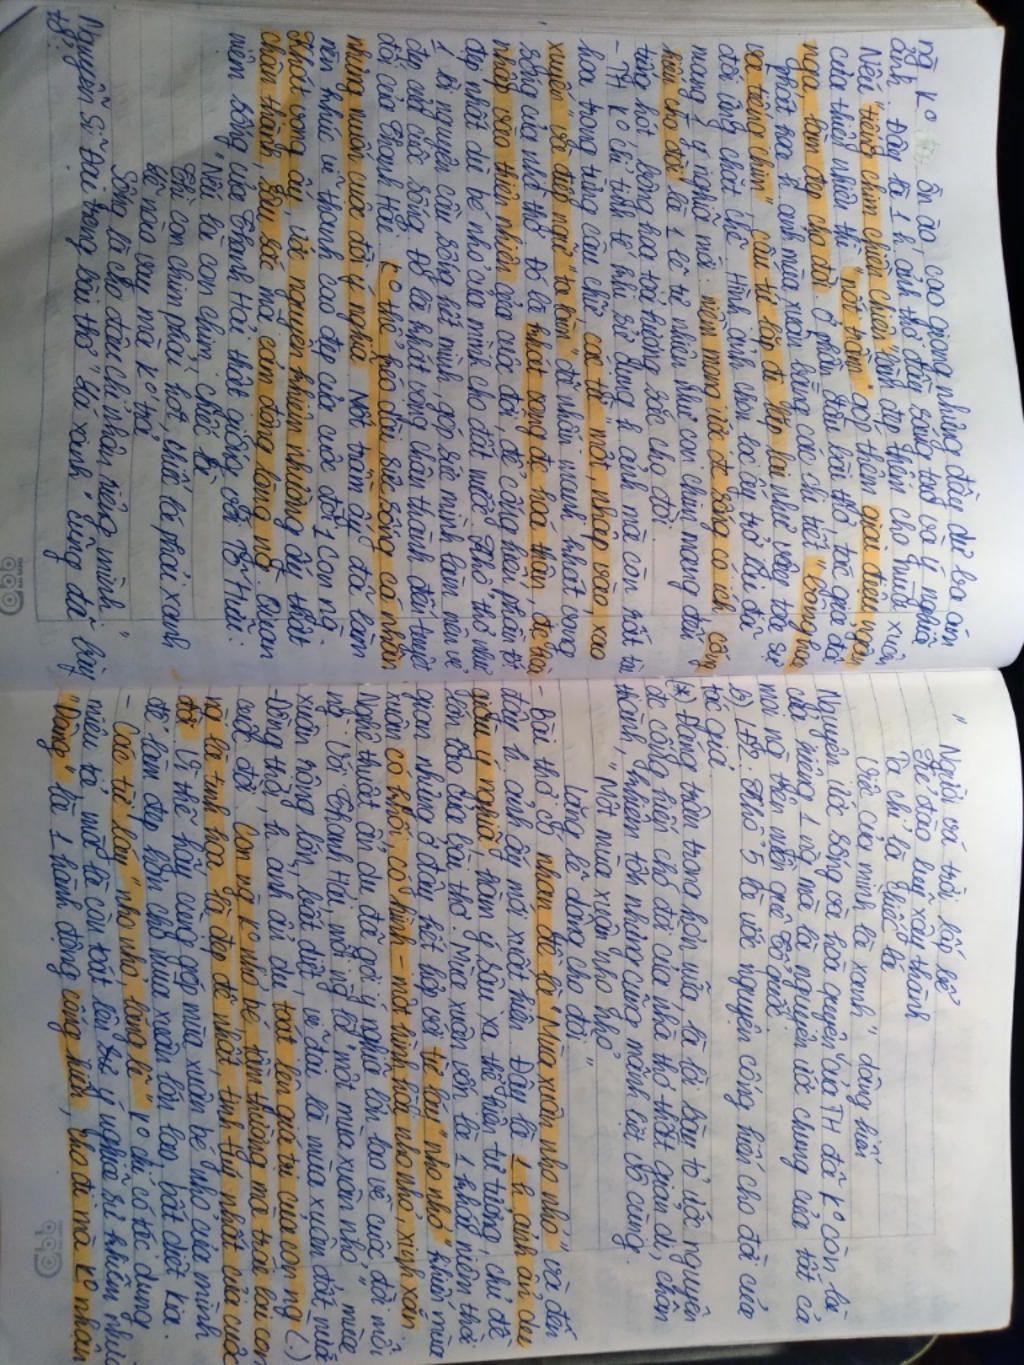 ng K° ồn ào, cao giọng nhưng đầy dư ba âm
ảnh. Đây là 1 h. ảnh thơ đầy sáng tạo và ý nghĩa
Nếu "tiếng chim chiền chiện" làm đẹp thêm cho mùa xuân
của thiên nhiên thì "nốt trầm" góp thêm giai điệu, ngân
nga, làm đẹp cho đời. Ở phần đầu bài thơ, tác giả đã
phát họa h. ảnh mùa xuân bằng các chi tiết "bông hoa
và tiếng chim" cấu tứ lặp đi lặp lại như vậy tạo sự
đối ứng chặt chẽ. Hình ảnh chọn lọc ấy trở lại đã
mang 1 ý nghĩa mới: niềm mong ước đc sống có ích, cống
hiến cho đời là 1 lẽ tự nhiên như con chim mang đến
tiếng hót, bông hoa tỏa hương sắc cho đời.
- TH K° chỉ tinh tế khi sử dụng h. ảnh mà còn rất tài
hoa trong từng câu chữ. các từ "một, nhập vào, xao
xuyến" và điệp ngữ "ta làm" để nhấn mạnh khát vọng
sống của nhà thơ. Đó là khát vọng đc hóa thân, đc hòa
nhập vào thiên nhiên, vào cuộc đời, để cống hiến phần tốt
đẹp nhất dù bé nhỏ của mình cho đất nước. Khổ thơ như
1 lời nguyện cầu sống hết mình, góp sức mình làm nên vẻ
đẹp của cuộc sống. Đó là khát vọng chân thành đến tuyệt
đối của Thanh Hải.
K° thể kéo dài sự sống cá nhân
nhưng muốn cuộc đời ý nghĩa. Nốt trầm ấy đã làm
nên khúc vĩ thanh cao đẹp của cuộc đời 1 con ng.
Khát vọng ấy, ước nguyện khiêm nhường ấy thật
chân thành, sâu sắc mà cảm động lòng ng. Quan
niệm sống của Thanh Hải thật giống với Tố Hữu:
"Nếu là con chim, chiếc lá
Thì con chim phải hót, chiếc lá phải xanh
Lẽ nào vay mà K° trả
Sống là cho đâu chỉ nhận riêng mình"
Nguyễn Sĩ Đại trong bài thơ "Lá xanh" cũng đã bày
tỏ:
" Người vá trời, lấp bể
Kẻ đắp lũy xây thành
Ta chỉ là chiếc lá
Việc của mình là xanh" dâng hiến
Nguyện ước sống và hòa quyện của TH đã K° còn là
của riêng 1 ng mà là nguyện ước chung của tất cả
mọi ng trên miền quê Tổ quốc.
b) LĐ2: Khổ 5 là ước nguyện cống hiến cho đời của
tác giả.
(*) Đáng trân trọng hơn nữa, là lời bày tỏ ước nguyện
đc cống hiến cho đời của nhà thơ thật giản dị, chân
thành, khiêm tốn nhưng cũng mãnh liệt vô cùng.
"Một mùa xuân nho nhỏ
Lặng lẽ dâng cho đời"
- Bài thơ có nhan đề là "Mùa xuân nho nhỏ", và đến
đây h. ảnh ấy mới xuất hiện. Đây là 1 h. ảnh ẩn dụ
giàu ý nghĩa, hàm ý sâu xa thể hiện tư tưởng, chủ đề
lớn lao của bài thơ. Mùa xuân vốn là 1 khái niệm thời
gian nhưng ở đây kết hợp với từ láy "nho nhỏ" khiến mùa
xuân có khối, có hình - một hình hài nho nhỏ, xinh xắn.
Nghệ thuật ẩn dụ đã gợi ý nghĩa lớn lao về cuộc đời mỗi
ng. Với Thanh Hải, mỗi ng là "một mùa xuân nho nhỏ", mùa
xuân rộng lớn, bất diệt, vĩ đại là mùa xuân đất nước
- Đồng thời, h. ảnh ẩn dụ thật lớn giá trị của con ng (.)
cuộc đời. Con ng K° nhỏ bé, tầm thường mà trái lại con
ng là tinh hoa, là đẹp đẽ nhất, tinh túy nhất của cuộc
đời. Vì thế hãy cùng góp mùa xuân bé nhỏ của mình
để làm đẹp hơn cho mùa xuân lớn lao, bất diệt kia.
- Các từ láy "nho nhỏ, lặng lẽ" K° chỉ có tác dụng
miêu tả mà là còn toát lên ý nghĩa sự khiêm nhường
"Dâng" là 1 hành động cống hiến, cho đi mà K° nhận